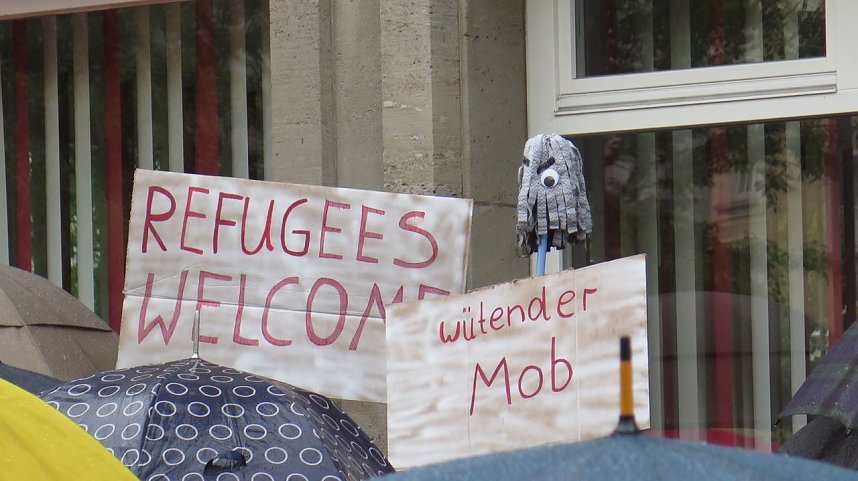 REFUGEES
WELCOME
wütender
Mob